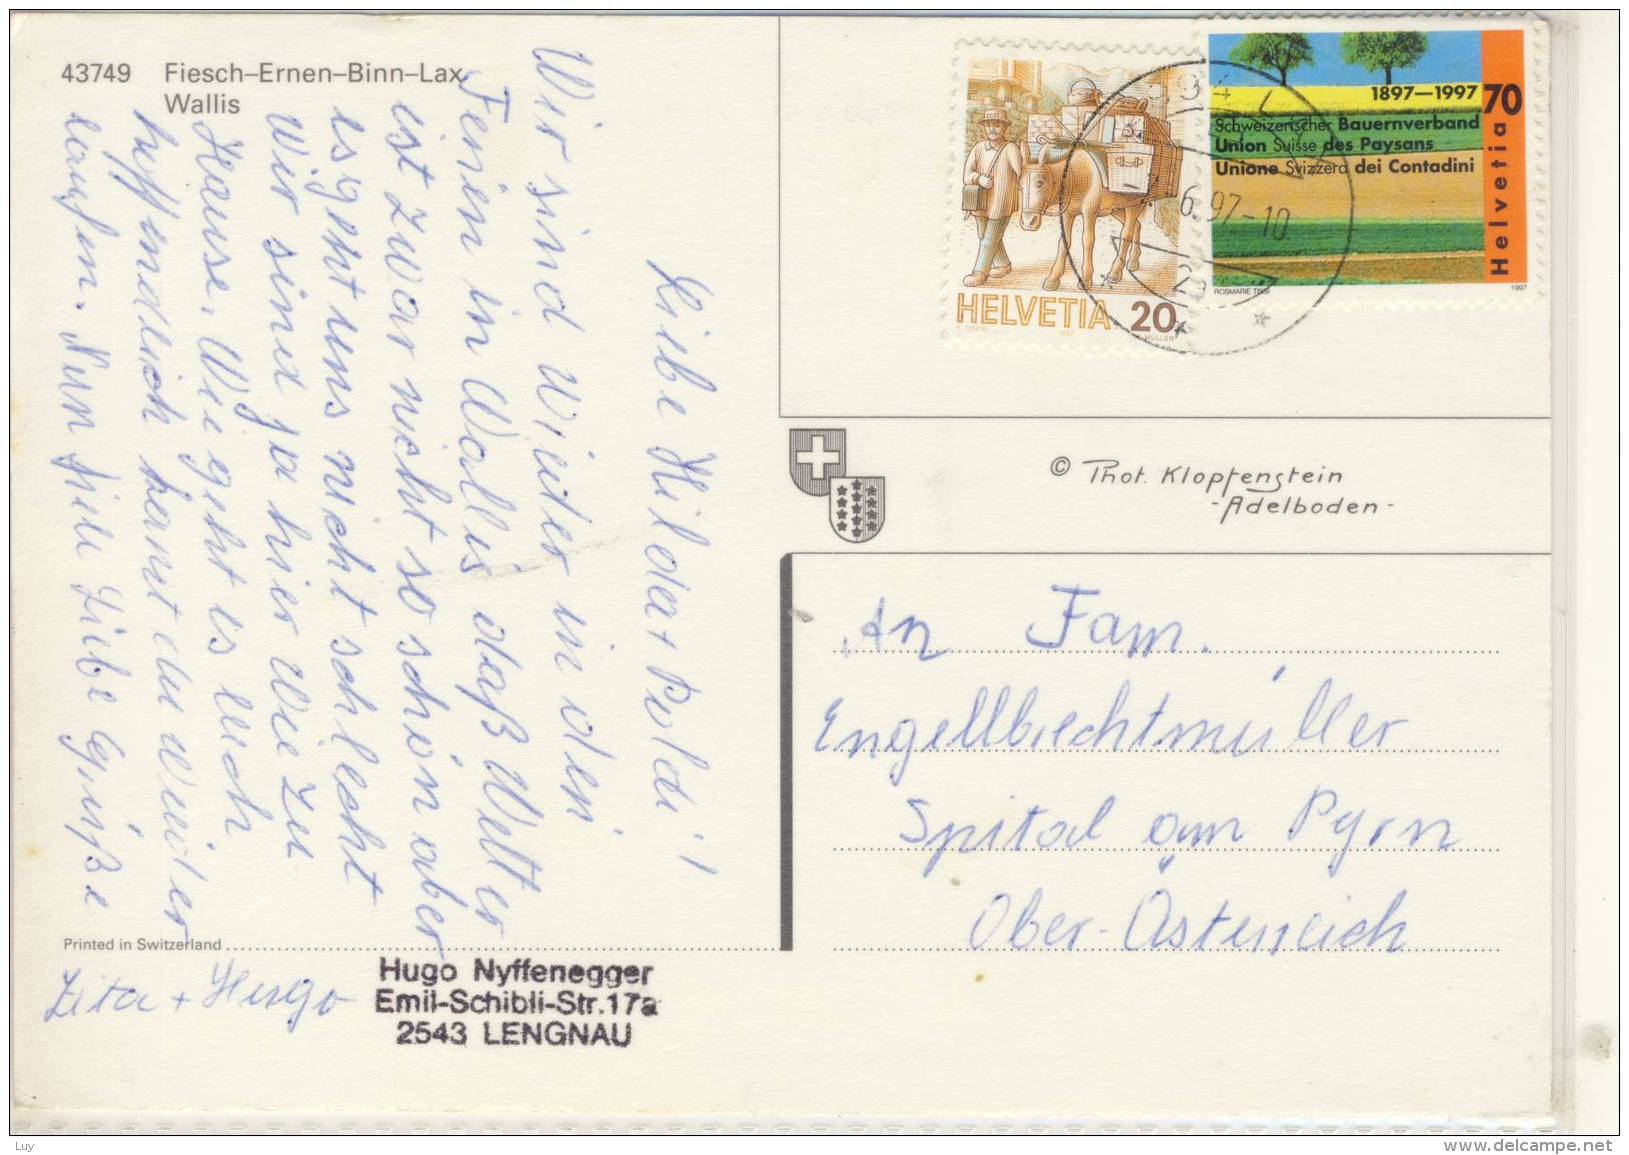 43749 Fiesch–Ernen–Binn–Lax
Wallis
Liebe Hilda + Poldi!
Wir sind wieder in den
Ferien in Wallis das Wetter
ist zwar nicht so schön aber
es geht uns nicht schlecht
wir sind ja hier wie zu
Hause. Wie geht es euch
hoffendlich kannt du wieder
laufen. Nun viele Liebe Grüße
Zita + Hugo
Printed in Switzerland
Hugo Nyffenegger
Emil-Schibli-Str.17a
2543 LENGNAU
HELVETIA 20
1897–1997 70
Schweizerischer Bauernverband
Union Suisse des Paysans
Unione Svizzera dei Contadini
Helvetia
ROSMARIE TISSI 1997
6.97-10
© Phot. Klopfenstein
- Adelboden -
An Fam.
Engellbrechtmüller
Spital am Pyrn
Ober-Östereich
Luy
www.delcampe.net